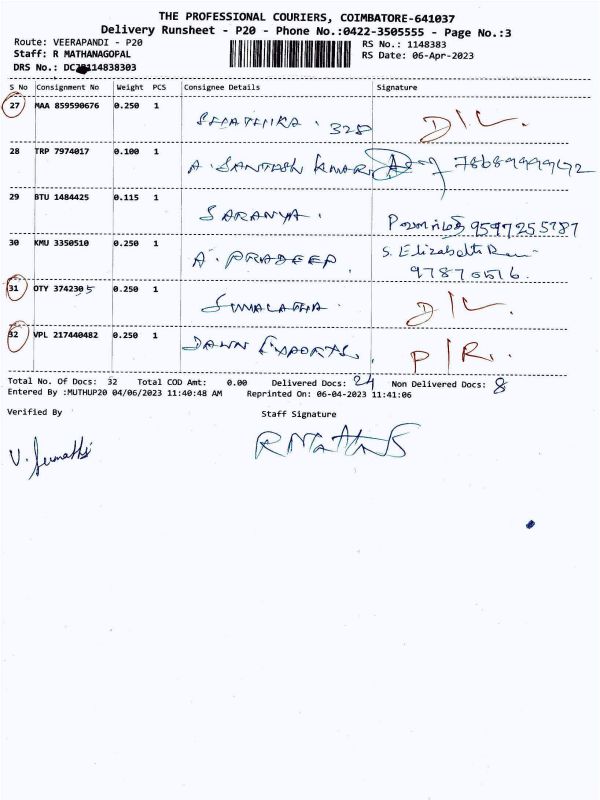 THE PROFESSIONAL COURIERS, COIMBATORE-641037
Delivery Runsheet - P20 - Phone No.:0422-3505555 - Page No.:3
Route: VEERAPANDI - P20 RS No.: 1148383
Staff: R MATHANAGOPAL RS Date: 06-Apr-2023
DRS No.:
S No Consignment No Weight PCS Consignee Details Signature
27 MAA 859590676 0.250 1 328 D/L.
28 TRP 7974017 0.100 1 A. SANTOSH KMAR
29 BTU 1484425 0.115 1 SARANYA. 9597255787
30 KMU 3350510 0.250 1 A. PRADEEP. S. Elizabeth
31 OTY 3742305 0.250 1 SUMALATHA D/L
32 VPL 217440482 0.250 1 DAWN EXPORTS. P/R..
Total No. Of Docs: 32 Total COD Amt: 0.00 Delivered Docs: 24 Non Delivered Docs: 8
Entered By :MUTHUP20 04/06/2023 11:40:48 AM Reprinted On: 06-04-2023 11:41:06
Verified By Staff Signature
V. Sumathi